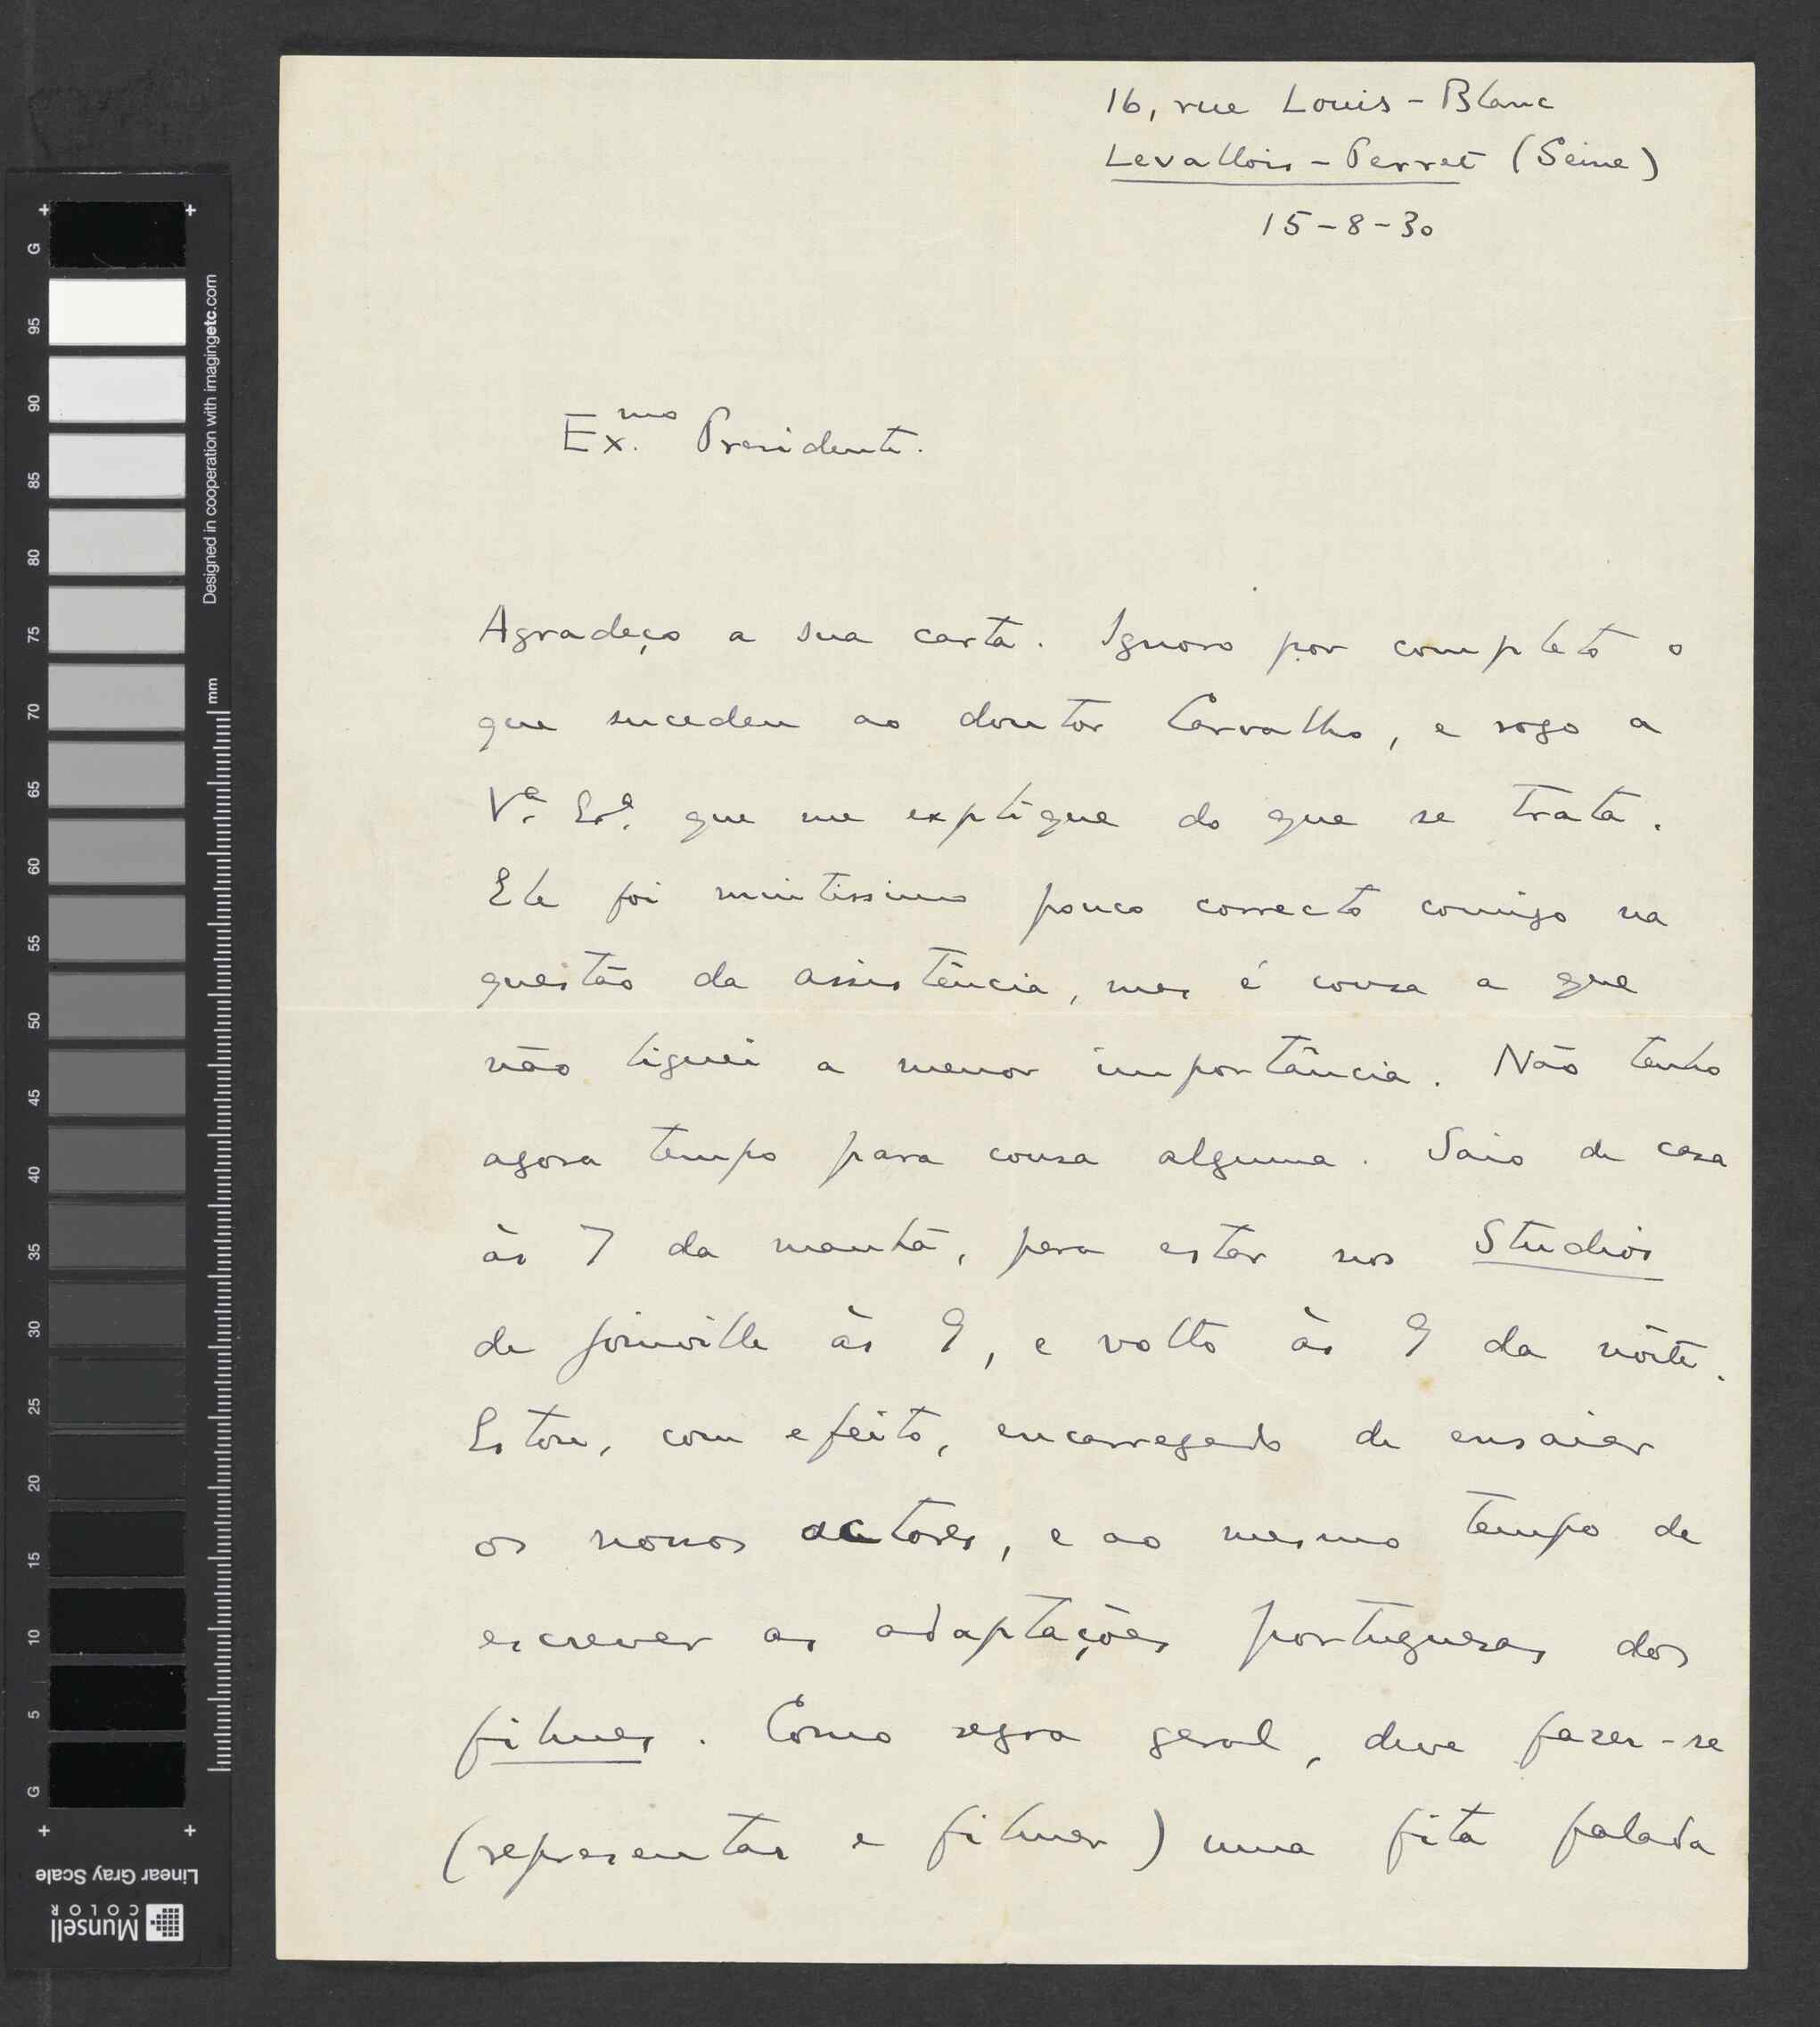 16, rue Louis-Blanc
Levallois-Perret (Seine)
15-8-30
Ex.mo Presidente.
Agradeço a sua carta. Ignoro por completo o
que sucedeu ao doutor Carvalho, e rogo a
V.ª Ex.ª que me explique do que se trata.
Ele foi muitissimo pouco correcto comigo na
questão da assistência, mas é cousa a que
não liguei a menor importância. Não tenho
agora tempo para cousa alguma. Saio de casa
às 7 da manhã, para estar nos Studios
de Joinville às 9, e volto às 9 da nôite.
Estou, com efeito, encarregado de ensaiar
os nossos actores, e ao mesmo tempo de
escrever as adaptações portuguesas dos
filmes. Como regra geral, deve fazer-se
(representar e filmar) uma fita falada
G
95
90
85
80
75
70
65
60
55
50
45
40
35
30
25
20
15
10
5
G
Designed in cooperation with imagingetc.com
mm
Linear Gray Scale
Munsell
COLOR